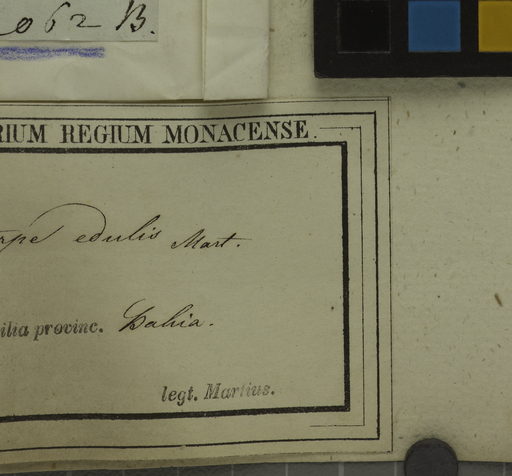 062 B.
RIUM REGIUM MONACENSE.
rpe edulis Mart.
ilia provinc. Bahia.
legt. Martius.